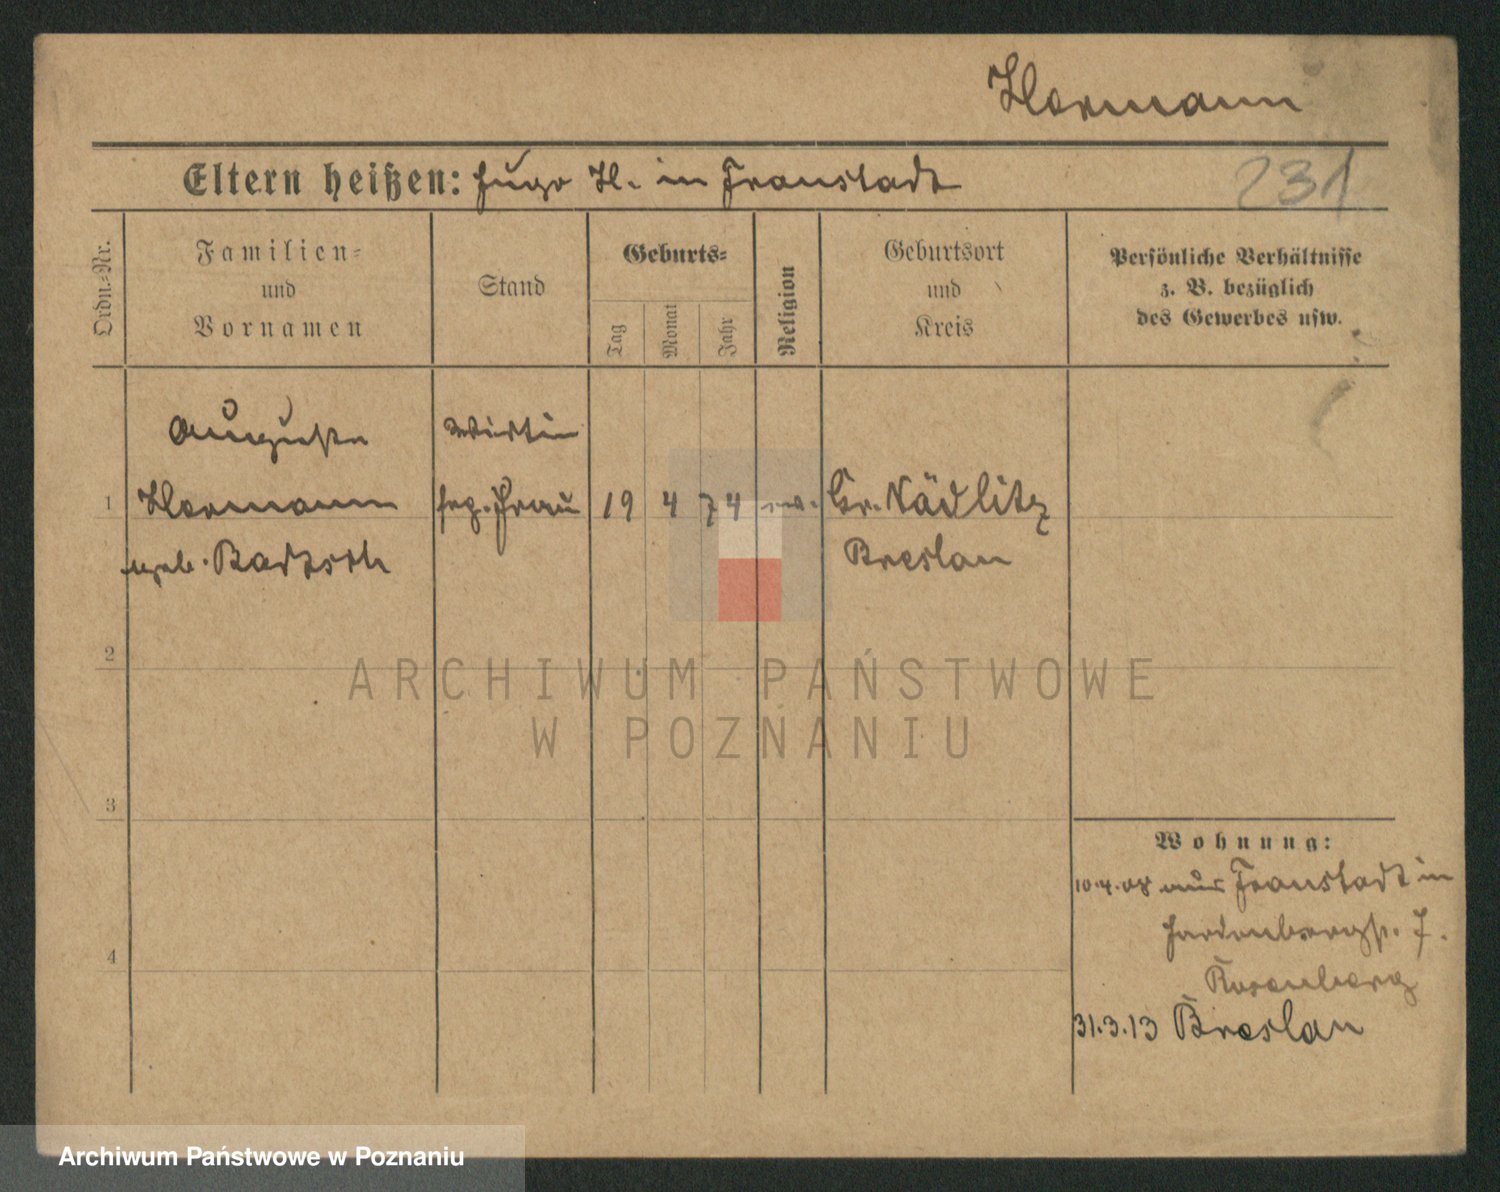 Hermann
Eltern heißen: Hugo H. in Fraustadt
231
Ordn.-Nr.
Familien-
und
Vornamen
Stand
Geburts-
Tag
Monat
Jahr
Religion
Geburtsort
und
Kreis
Persönliche Verhältnisse
z. B. bezüglich
des Gewerbes usw.
Auguste
Wirtin
1 Hermann
Frau 19 4 74 ev. Gr. Nädlitz
geb.
Breslau
2
3
4
Wohnung:
10.4.08 aus Fraustadt in
Hardenbergstr. 7.
Rosenberg
31.3.13 Breslau
ARCHIWUM PAŃSTWOWE
W POZNANIU
Archiwum Państwowe w Poznaniu